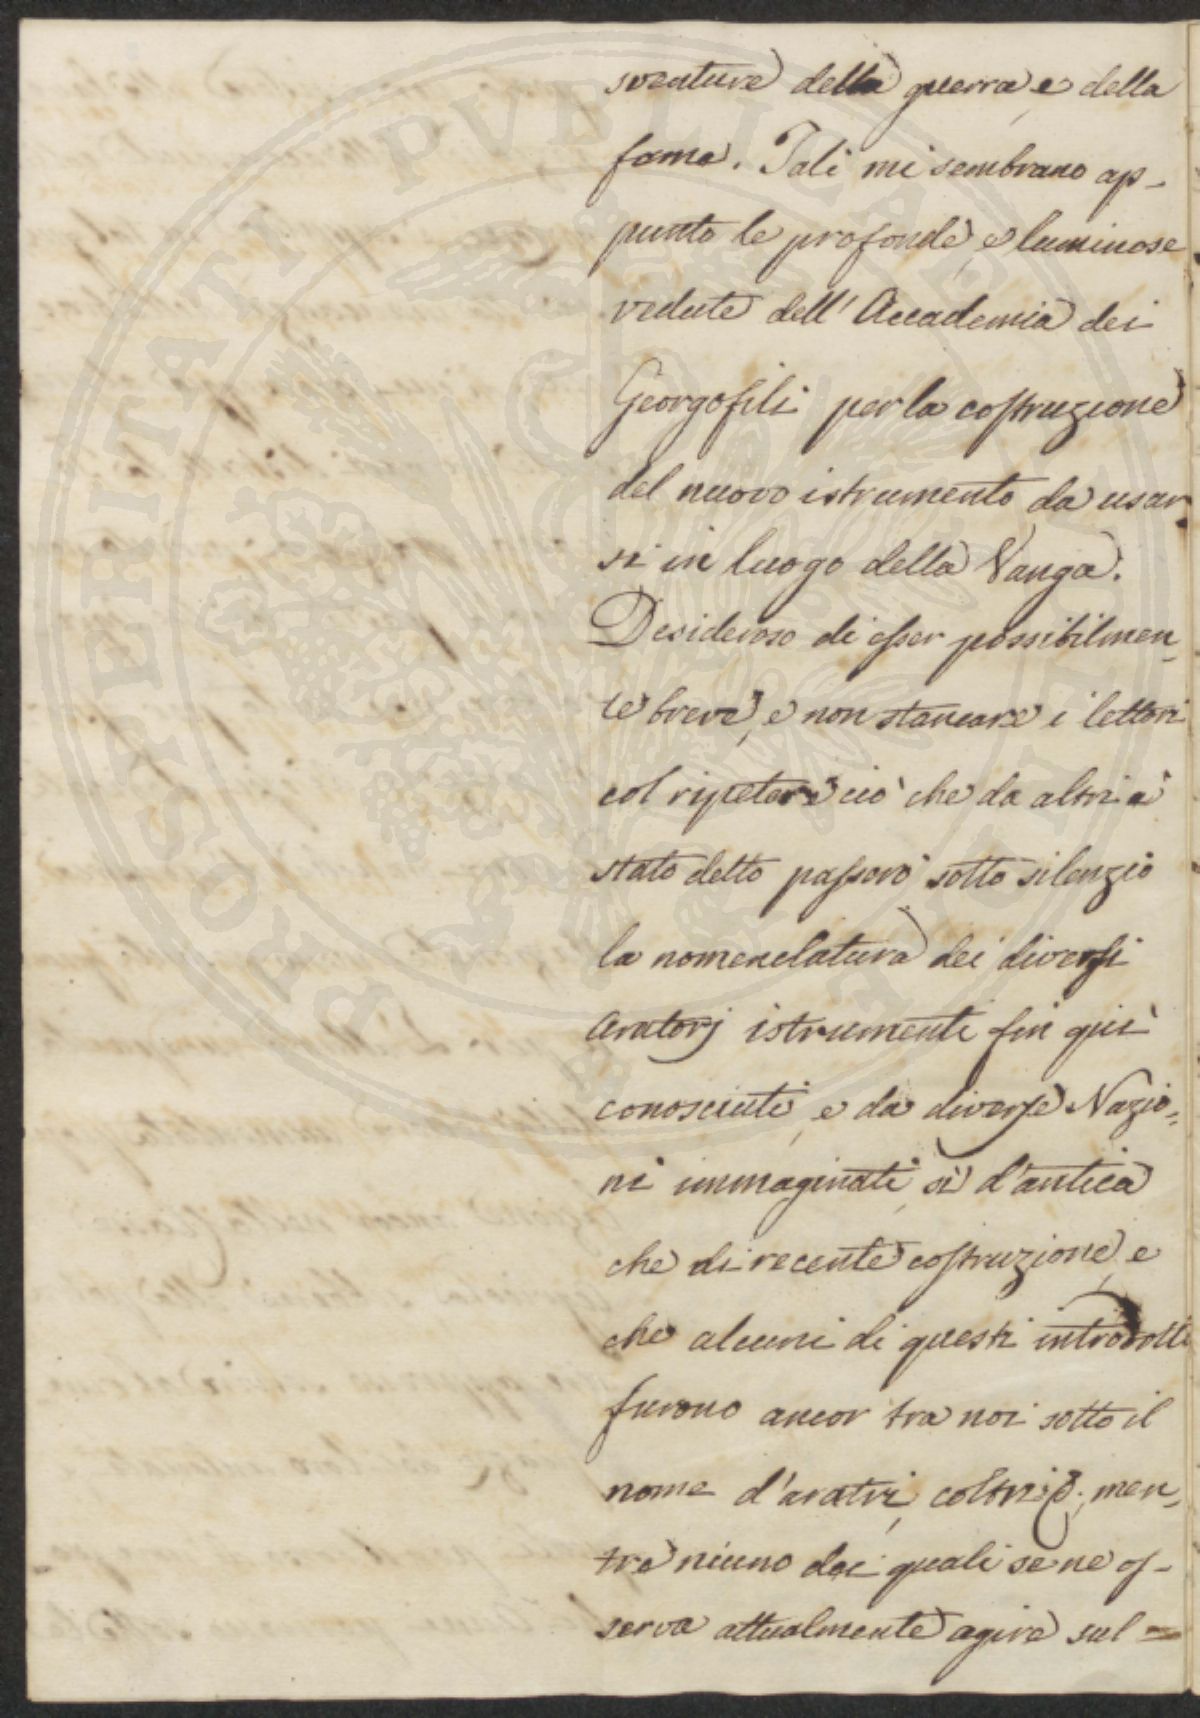 sventure della guerra, e della
fame. Tali mi sembrano ap-
punto le profonde, e luminose
vedute dell'Accademia dei
Georgofili per la costruzione
del nuovo istrumento da usar
si in luogo della Vanga.
Desideroso di esser possibilmen=
te breve, e non stancare i lettori
col ripetere ciò che da altri è
stato detto passerò sotto silenzio
la nomenclatura dei diversi
aratorj istrumenti fin quì
conosciuti, e da diverse Nazio=
ni immaginati, sì d'antica
che di recente costruzione, e
che alcuni di questi introdotti
furono ancor tra noi sotto il
nome d'aratri, coltri &; men=
tre niuno dei quali se ne os-
serva attualmente agire sul=
PROSPERITATI PVBLICAE AVGENDAE